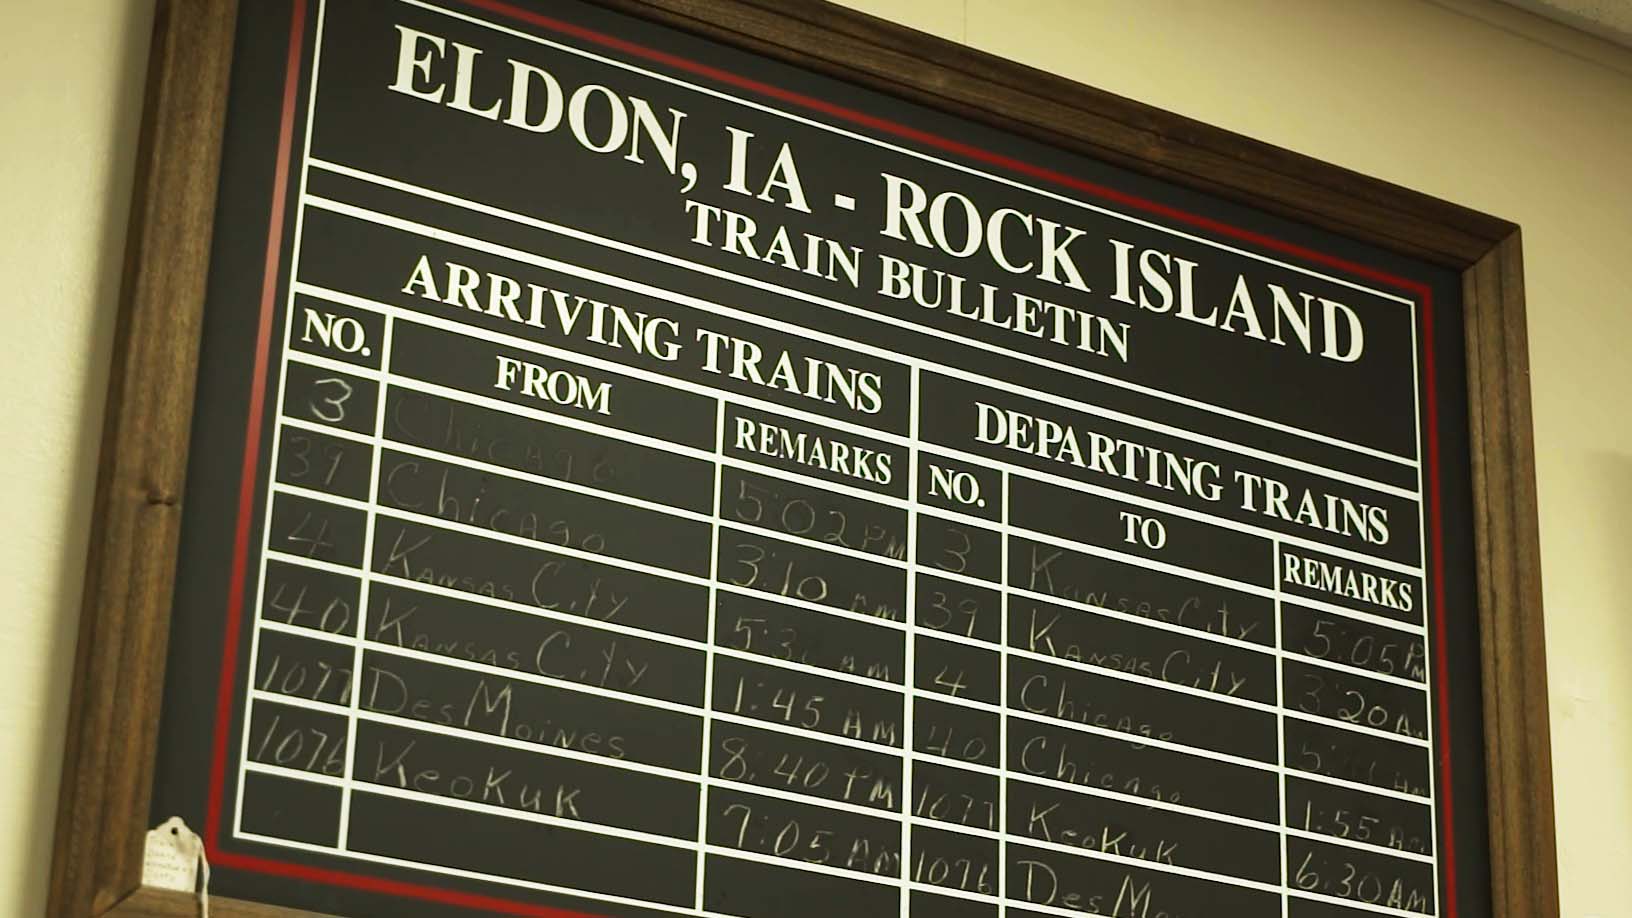 ELDON, IA - ROCK ISLAND
TRAIN BULLETIN
ARRIVING TRAINS DEPARTING TRAINS
NO. FROM REMARKS NO. TO REMARKS
3 Chicago 5:02 PM 3 Kansas City 5:05 PM
39 Chicago 3:10 AM 39 Kansas City 3:20 AM
4 Kansas City AM 4 Chicago AM
40 Kansas City 1:45 AM 40 Chicago 1:55 AM
1077 Des Moines 8:40 PM 1077 Keokuk 6:30 AM
1076 Keokuk 7:05 AM 1076